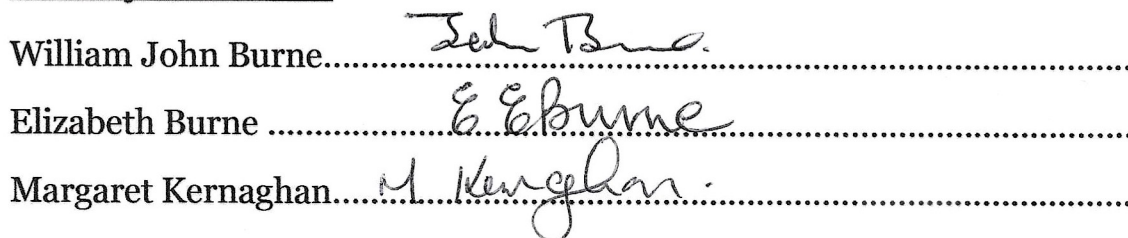 William John Burne.......... John Burne.
Elizabeth Burne .......... E E Burne
Margaret Kernaghan.......... M Kernaghan.